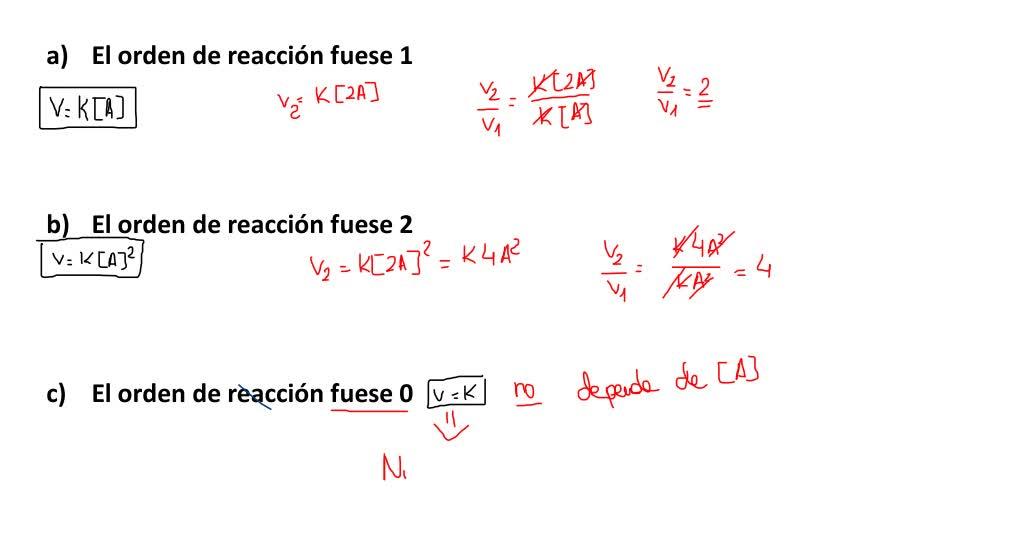 a) El orden de reacción fuese 1
V = K[A]
V₂ = K[2A]
V₂/V₁ = K[2A]/K[A]
V₂/V₁ = 2
b) El orden de reacción fuese 2
V = K[A]²
V₂ = K[2A]² = K4A²
V₂/V₁ = K4A²/KA² = 4
c) El orden de reacción fuese 0 V = K no depende de [A]
N